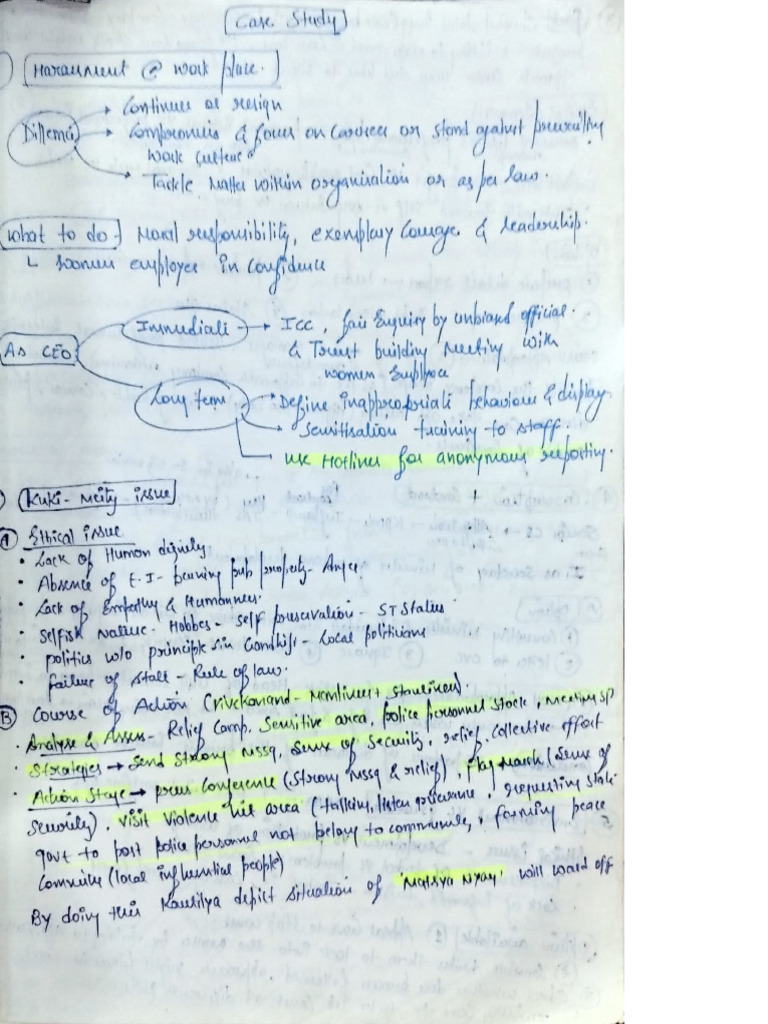 Case Study
Harassment @ work place.
Dillema
→ Continue or resign
→ Compromis & focus on Carrier or stand against prevailing
work culture
→ Tackle Matter within organisation or as per law.
What to do - Moral responsibility, exemplary Courage & leadership.
└ Women employee in Confidence
As CEO
Immediate → ICC, fair Enquiry by unbiased official.
& Trust building Meeting with
women Employee
Long term → Define inappropriate behaviour & display
→ Sensitisation training to staff
→ use Hotlines for anonymous reporting.
Kuki-Meity issue
A Ethical issue
• Lack of Human dignity.
• Absence of E.I - burning pub property - Anger
• Lack of Empathy & Humanness.
• Selfish Nature. Hobbes - Self preservation - ST Status
• politics w/o principle sin Gandhiji - Local politicians
• failure of state - Rule of law.
B Course of Action (Vivekanand - Nemliness + Stauliness).
• Analyse & Asses - Relief Camp, Sensitive area, police personnel stock, Meeting SP
• Strategies → Send Strong mssg, Sense of Security, relief, Collective effort
• Action Stage → press Conference (Strong Mssg & relief), flag March (Sense of
Security), visit violence hit area (talking, listen grievance, requesting state
govt to post police personnel not belong to community, & forming peace
Committee (local influential people)
By doing this Kautilya depict situation of 'Matsya Nyay' will ward off